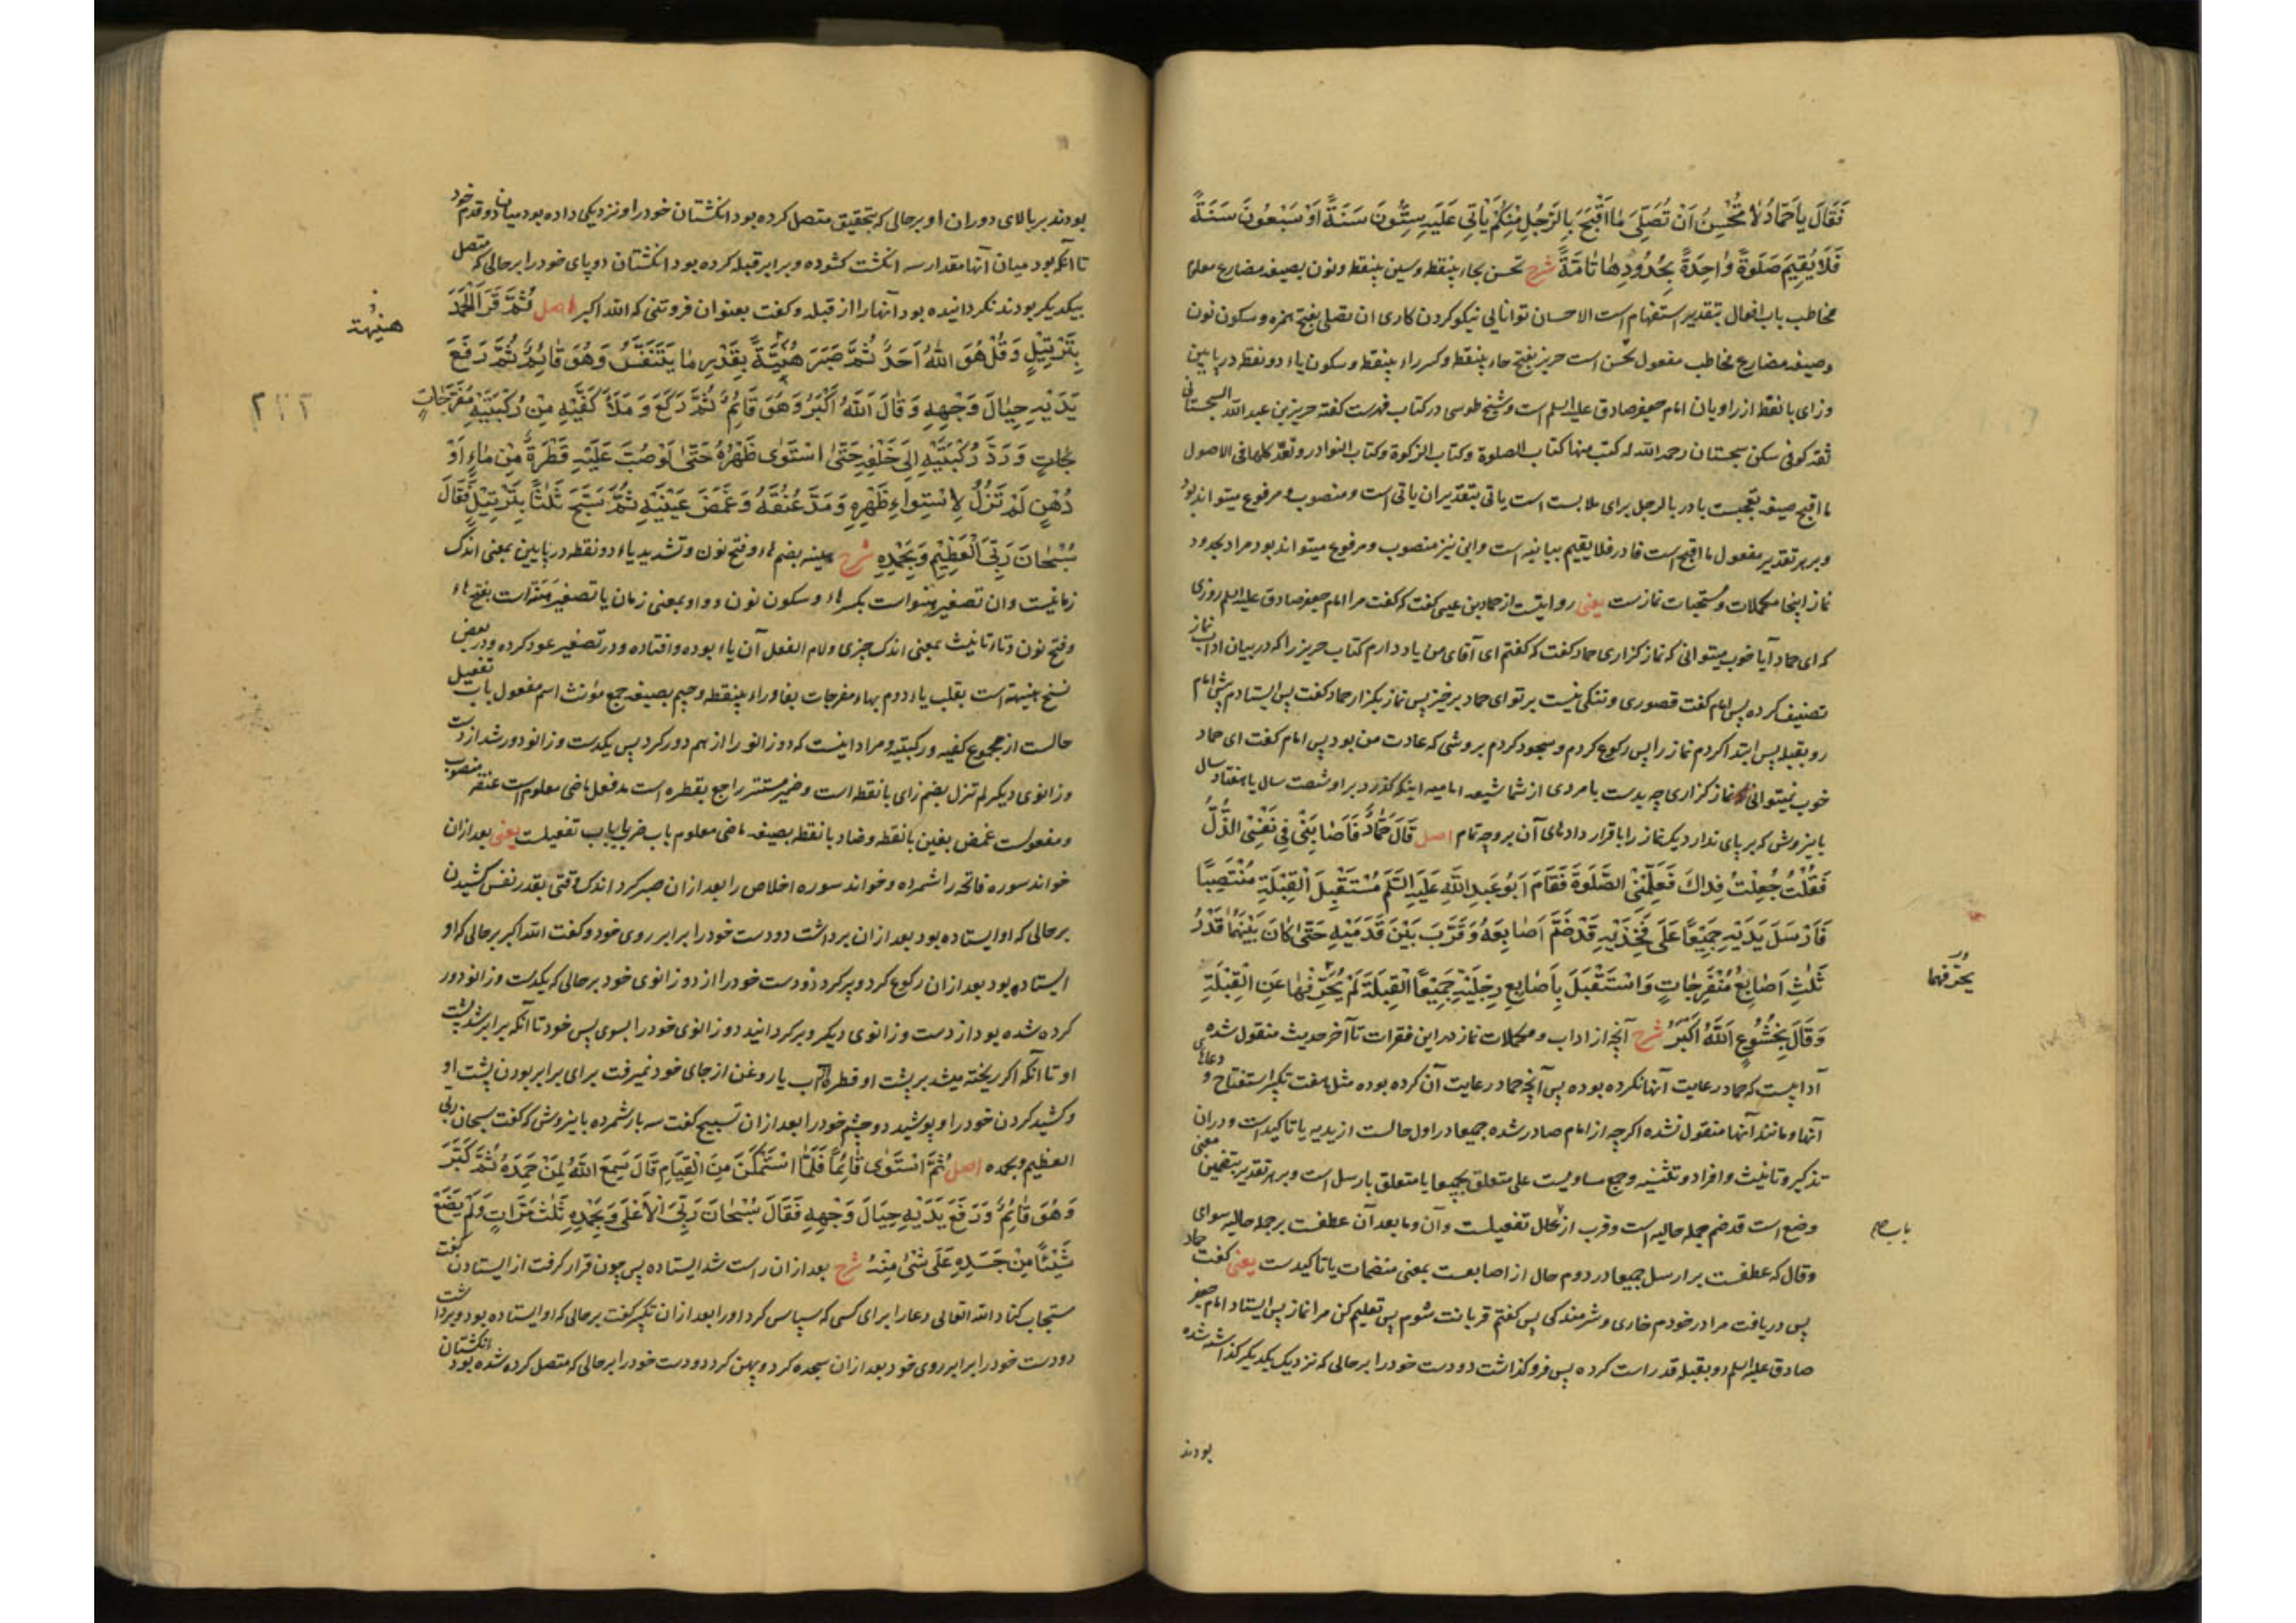 فَقَالَ يَا حَمَّادُ لَا تُحْسِنُ اَنْ تُصَلِّىَ مَا اَقْبَحَ بِالرَّجُلِ مِنْكُمْ يَأْتِى عَلَيْهِ سِتُّونَ سَنَةً اَوْ سَبْعُونَ سَنَةً
فَلَا يُقِيمَ صَلٰوةً وَاحِدَةً بِحُدُودِهَا تَامَّةً شرح تحسن بحاء بینقطه و سین بینقطه و نون بصیغه مضارع معلوم
مخاطب باب افعال بتقدیر استفهام است الاحسان توانایی نیکو کردن کاری ان تصلی بفتح همزه و سکون نون
و صیغه مضارع مخاطب مفعول تحسن است حریز بفتح حاء بینقطه و کسر راء بینقطه و سکون یاء دو نقطه در پایین
و زای با نقطه از راویان امام جعفر صادق علیه السلم است و شیخ طوسی در کتاب فهرست کفته حریز بن عبد الله السجستانی
ثقه کوفی سکن سجستان رحمه الله له کتب منها کتاب الصلوة و کتاب الزکوة و کتاب النوادر و تعد کلها فی الاصول
ما اقبح صیغه تعجبست با در بالرجل برای ملابست است یاتی بتقدیر ان یاتی است و منصوب و مرفوع میتواند بود
و بر هر تقدیر مفعول ما اقبح است فا در فلا یقیم بیانیه است و این نیز منصوب و مرفوع میتواند بود مراد بحدود
نماز اینجا مکملات و مستحبات نمازست یعنی روایتست از حماد بن عیسی کفت که کفت مرا امام جعفر صادق علیه السلم روزی
که ای حماد آیا خوب میتوانی که نماز کزاری حماد کفت که کفتم ای آقای من یاد دارم کتاب حریز را که در بیان اداب نماز
تصنیف کرده پس امام کفت قصوری و تنکی نیست بر تو ای حماد برخیز پس نماز بکزار حماد کفت پس ایستادم پیش امام
رو بقبله پس ابتدا کردم نماز را پس رکوع کردم و سجود کردم بروشی که عادت من بود پس امام کفت ای حماد
خوب نمیتوانی که نماز کزاری چه بدست با مردی از شما شیعه امامیه اینکه کذرد بر او شصت سال یا هفتاد سال
باینروش که بر پای ندارد یکنماز را با قرار دادهای آن بر وجه تمام اصل قَالَ حَمَّادٌ فَاَصَابَنِى فِى نَفْسِى الذُّلُّ
فَقُلْتُ جُعِلْتُ فِدَاكَ فَعَلِّمْنِى الصَّلٰوةَ فَقَامَ اَبُو عَبْدِ اللّٰهِ عَلَيْهِ السَّلَمُ مُسْتَقْبِلَ الْقِبْلَةِ مُنْتَصِبًا
فَاَرْسَلَ يَدَيْهِ جَمِيْعًا عَلَى فَخِذَيْهِ قَدْ ضَمَّ اَصَابِعَهُ وَ قَرَّبَ بَيْنَ قَدَمَيْهِ حَتّٰى كَانَ بَيْنَهُمَا قَدْرُ
ثَلٰثِ اَصَابِعَ مُنْفَرِجَاتٍ وَاسْتَقْبَلَ بِاَصَابِعِ رِجْلَيْهِ جَمِيْعًا الْقِبْلَةَ لَمْ يُحَرِّفْهَا عَنِ الْقِبْلَةِ
يحرفهما
وَ قَالَ بِخُشُوعٍ اَللّٰهُ اَكْبَرُ شرح آنچه از اداب و مکملات نماز در این فقرات تا آخر حدیث منقول شده
آدابیست که حماد رعایت آنها نکرده بوده پس آنچه حماد رعایت آن کرده بوده مثل هفت تکبیر استفتاح و دعاهای
آنها و مانند آنها منقول نشده اکرچه از امام صادر شده جمیعا در اول حالست از یدیه یا تاکیدست و در ان
تذکیر و تانیث و افراد و تثنیه و جمع مساویست علی متعلق بجمیعا یا متعلق بارسل است و بر هر تقدیر بتضمین معنی
وضع است قد ضم جمله حالیه است و قرب از باب تفعیلست و آن و ما بعد آن عطفست بر جمله حالیه سوای
باب صح
و قال که عطفست بر ارسل جمیعا در دوم حال از اصابعست بمعنی منضمات یا تاکیدست یعنی کفت حماد
پس دریافت مرا در خودم خاری و شرمندکی پس کفتم قربانت شوم پس تعلیم کن مرا نماز پس ایستاد امام جعفر
صادق علیه السلم رو بقبله قد راست کرده پس فرو کذاشت دو دست خود را بر حالی که نزدیک یکدیکر کذاشته شده
بودند
بودند بر بالای دو ران او بر حالی که بتحقیق متصل کرده بود انکشتان خود را و نزدیکی داده بود میان دو قدم خود
تا آنکه بود میان آنها مقدار سه انکشت کشوده و برابر قبله کرده بود انکشتان دو پای خود را بر حالی که متصل
بیکدیکر بودند نکردانیده بود آنها را از قبله و کفت بعنوان فروتنی که الله اکبر اصل ثُمَّ قَرَاَ الْحَمْدَ
هنيهة
بِتَرْتِيْلٍ وَ قُلْ هُوَ اللّٰهُ اَحَدٌ ثُمَّ صَبَرَ هُنَيَّةً بِقَدْرِ مَا يَتَنَفَّسُ وَهُوَ قَائِمٌ ثُمَّ رَفَعَ
يَدَيْهِ حِيَالَ وَجْهِهِ وَ قَالَ اَللّٰهُ اَكْبَرُ وَ هُوَ قَائِمٌ ثُمَّ رَكَعَ وَ مَلَأَ كَفَّيْهِ مِنْ رُكْبَتَيْهِ مُفَرَّجَاتٍ
جَاتٍ وَ رَدَّ رُكْبَتَيْهِ اِلَى خَلْفِهِ حَتّٰى اسْتَوٰى ظَهْرُهُ حَتّٰى لَوْ صُبَّ عَلَيْهِ قَطْرَةٌ مِنْ مَاءٍ اَوْ
دُهْنٍ لَمْ تَزُلْ لِاسْتِوَاءِ ظَهْرِهِ وَ مَدَّ عُنُقَهُ وَ غَمَّضَ عَيْنَيْهِ ثُمَّ سَبَّحَ ثَلٰثًا بِتَرْتِيْلٍ فَقَالَ
سُبْحَانَ رَبِّىَ الْعَظِيْمِ وَ بِحَمْدِهِ شرح هنیه بضم هاء و فتح نون و تشدید یاء دو نقطه در پایین بمعنی اندک
زمانیست و ان تصغیر هنو است بکسر هاء و سکون نون و واو بمعنی زمان یا تصغیر هنة است بفتح هاء
و فتح نون و تاء تانیث بمعنی اندک چیزی و لام الفعل آن یاء بوده و افتاده و در تصغیر عود کرده و در بعض
نسخ هنیهة است بقلب یاء دوم بهاء مفرجات بفا و راء بینقطه و جیم بصیغه جمع مؤنث اسم مفعول باب تفعیل
حالست از مجموع کفیه و رکبتیه و مراد اینست که دو زانو را از هم دور کرد پس یکدست و زانو دور شد از دست
و زانوی دیکر لم تزل بضم زای با نقطه است و ضمیر مستتر راجع بقطره است مد فعل ماضی معلوم است عنقه منصوب
و مفعولست غمض بغین با نقطه و ضاد با نقطه بصیغه ماضی معلوم باب ضرب یا باب تفعیلست یعنی بعد از ان
خواند سوره فاتحه را شمرده و خواند سوره اخلاص را بعد از ان صبر کرد اندک وقتی بقدر نفس کشیدن
بر حالی که او ایستاده بود بعد از ان برداشت دو دست خود را برابر روی خود و کفت الله اکبر بر حالی که او
ایستاده بود بعد از ان رکوع کرد و پر کرد دو دست خود را از دو زانوی خود بر حالی که یکدست و زانو دور
کرده شده بود از دست و زانوی دیکر و برکردانید دو زانوی خود را بسوی پس خود تا آنکه برابر شد پشت
او تا آنکه اکر ریخته میشد بر پشت او قطره آب یا روغن از جای خود نمیرفت برای برابر بودن پشت او
و کشید کردن خود را و پوشید دو چشم خود را بعد از ان تسبیح کفت سه بار شمرده باینروش که کفت سبحان ربی
العظیم و بحمده اصل ثُمَّ اسْتَوٰى قَائِمًا فَلَمَّا اسْتَمْكَنَ مِنَ الْقِيَامِ قَالَ سَمِعَ اللّٰهُ لِمَنْ حَمِدَهُ ثُمَّ كَبَّرَ
وَ هُوَ قَائِمٌ وَ رَفَعَ يَدَيْهِ حِيَالَ وَجْهِهِ فَقَالَ سُبْحَانَ رَبِّىَ الْاَعْلٰى وَ بِحَمْدِهِ ثَلٰثَ مَرَّاتٍ وَ لَمْ يَضَعْ
شَيْئًا مِنْ جَسَدِهِ عَلَى شَىْءٍ مِنْهُ شرح بعد از ان راست شد ایستاده پس چون قرار کرفت از ایستادن کفت
مستجاب کناد الله تعالی دعا را برای کسی که سپاس کرد او را بعد از ان تکبیر کفت بر حالی که او ایستاده بود و برداشت
دو دست خود را برابر روی خود بعد از ان سجده کرد و پهن کرد دو دست خود را بر حالی که متصل کرده شده بود انکشتان